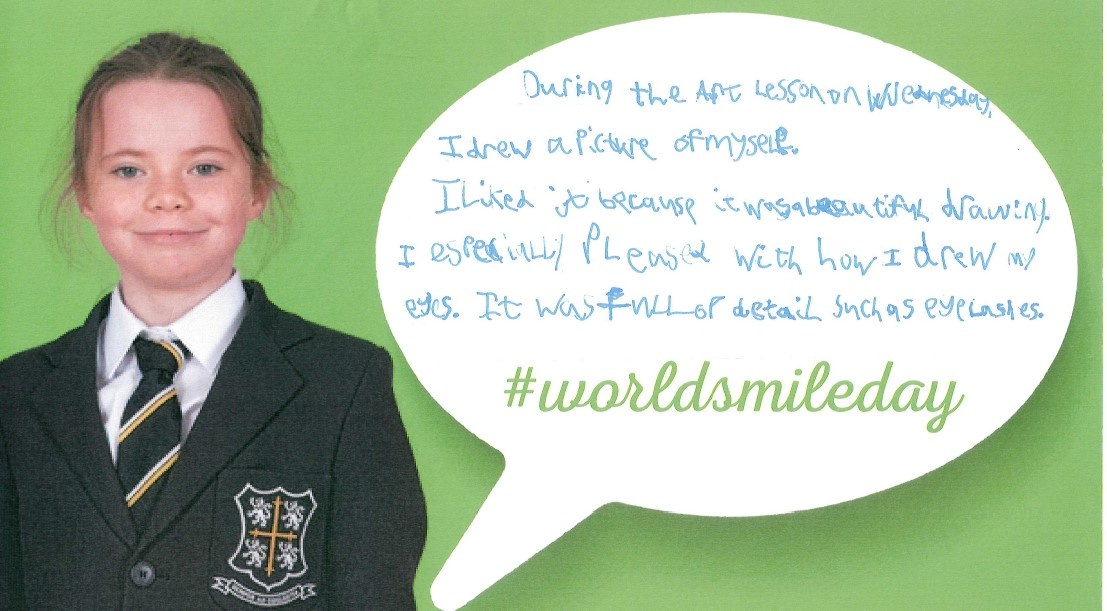 During the Art Lesson on Wednesday,
I drew a Picture of myself.
I Liked it because it was a beautiful drawing.
I especially Pleased with how I drew my
eyes. It was full of detail such as eyelashes.
#worldsmileday